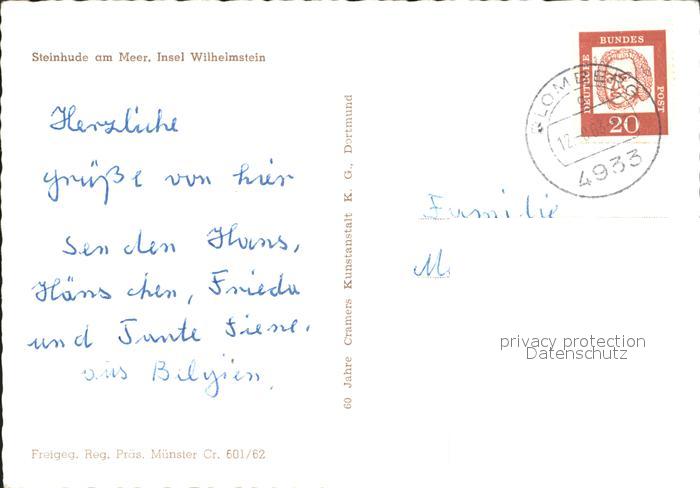 Steinhude am Meer, Insel Wilhelmstein
Herzliche
grüße von hier
senden Hans,
Hänschen, Frieda
und Tante Liene,
aus Belgien.
Freigeg. Reg. Präs. Münster Cr. 601/62
60 Jahre Cramers Kunstanstalt K. G., Dortmund
DEUTSCHE
BUNDES
POST
20
BLOMBERG
12.
4933
Familie
M
privacy protection
Datenschutz